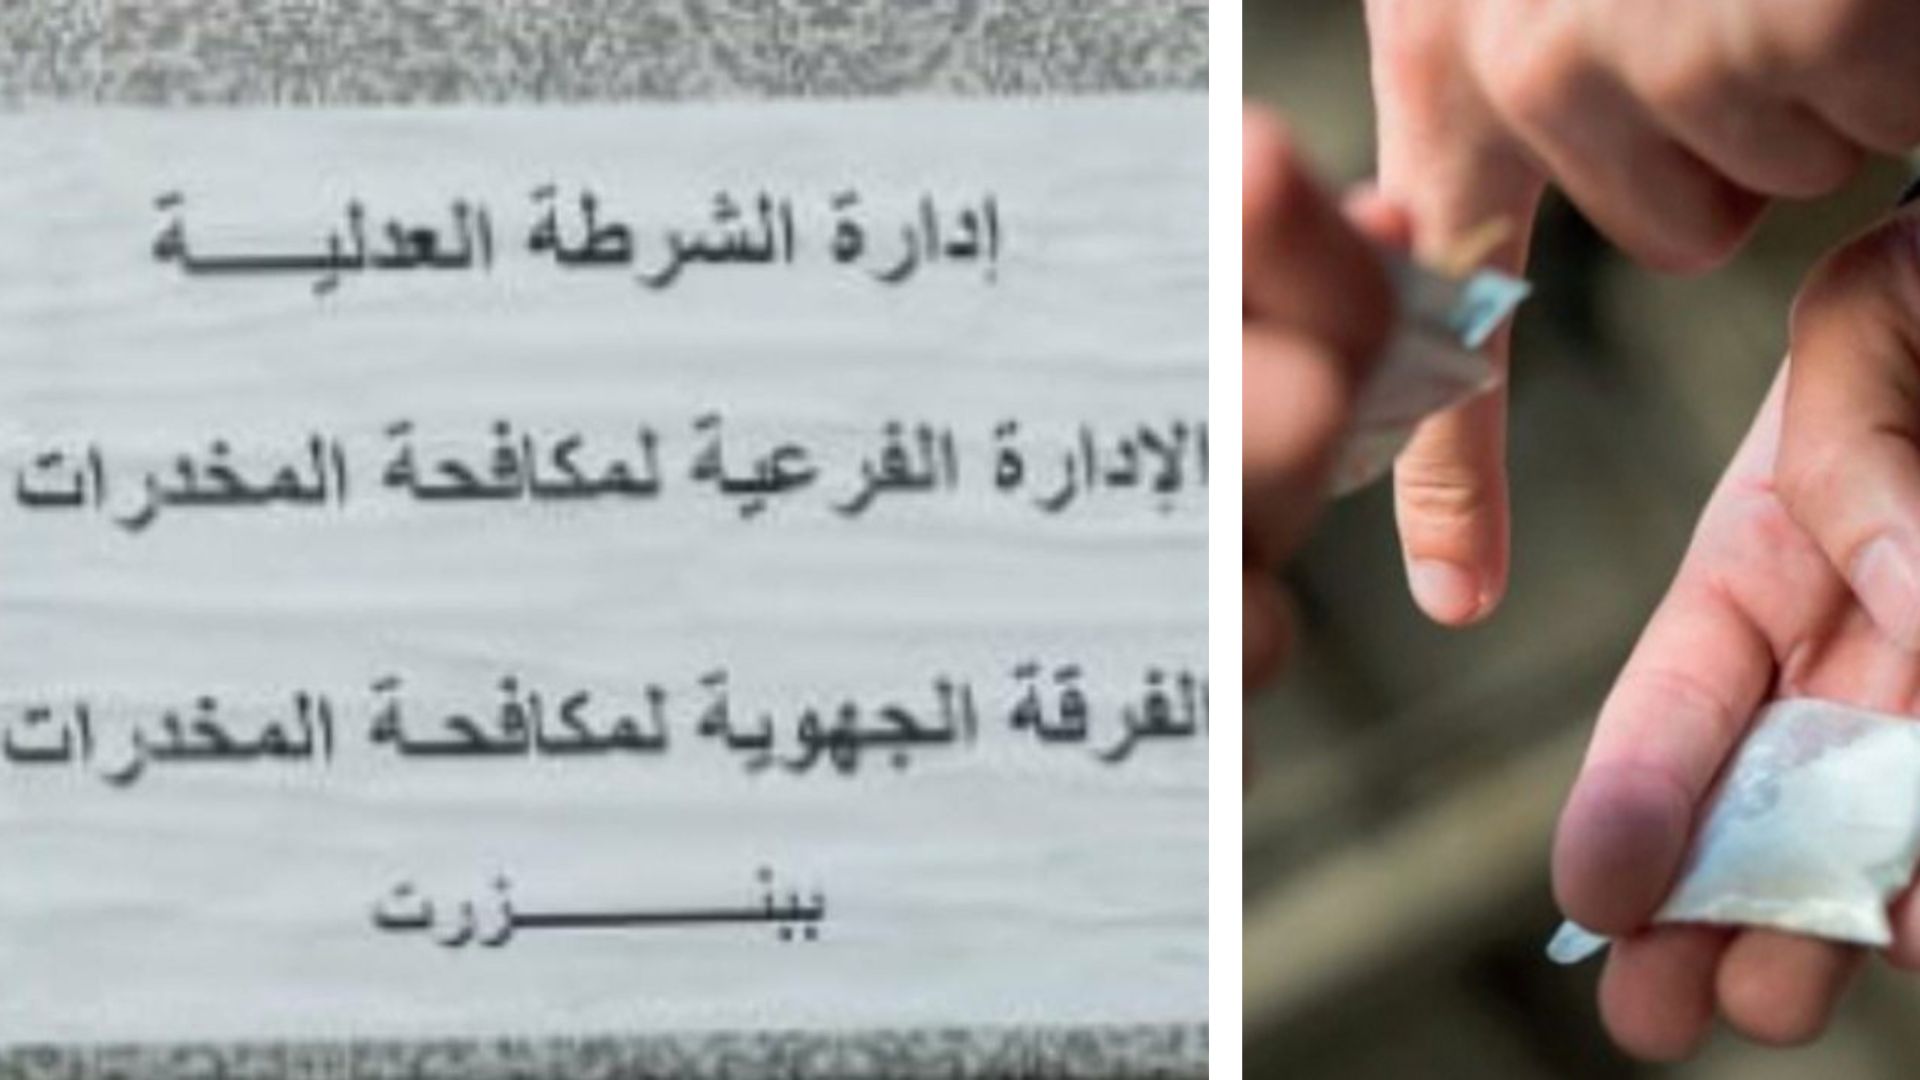 إدارة الشرطة العدلية
الإدارة الفرعية لمكافحة المخدرات
الفرقة الجهوية لمكافحة المخدرات
ببنزرت